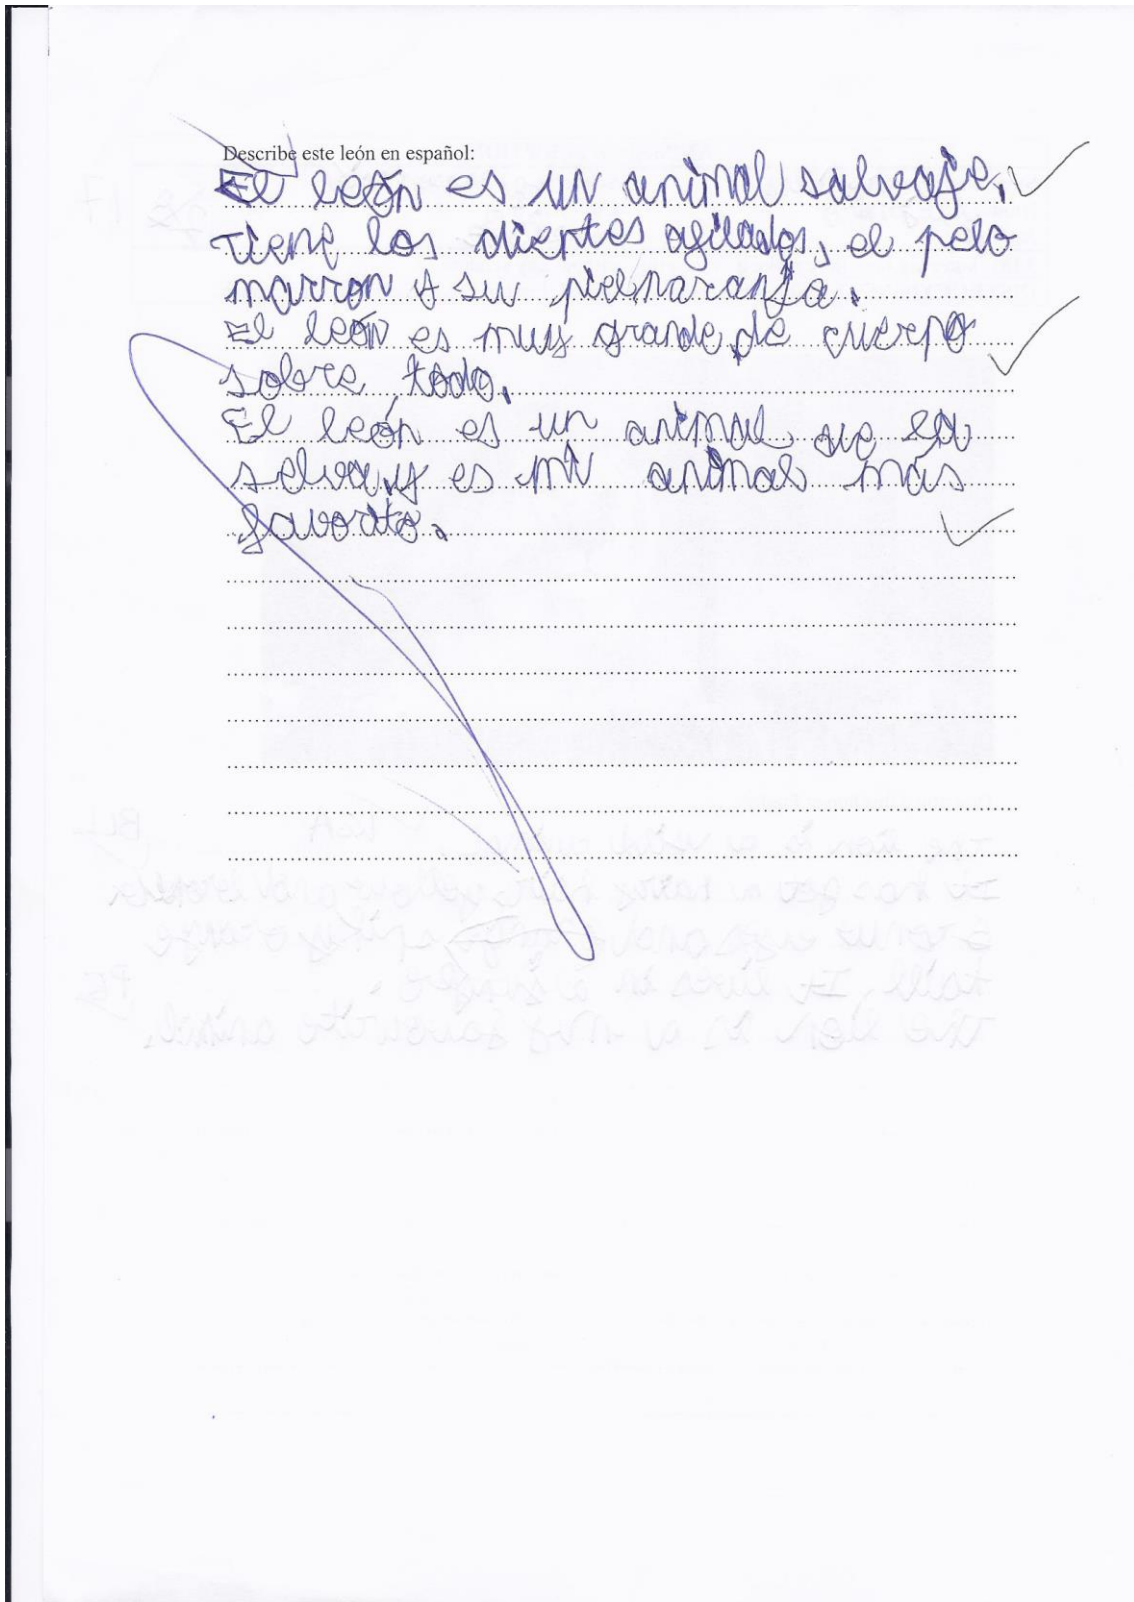 Describe este león en español:
El león es un animal salvaje.
Tiene los dientes agilados, el pelo
marron y su piel naranja.
El león es muy grande, de cuerpo
sobre todo.
El león es un animal de la
selva, y es mi animal más
favorito.